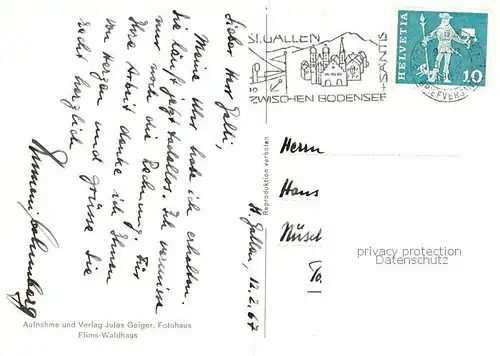 Lieber Herr Galli,
Meine Uhr habe ich erhalten.
Sie läuft jetzt tadellos. Ich vermisse
nur noch die Rechnung. Für
Ihre Arbeit danke ich Ihnen
von Herzen und grüsse Sie
recht herzlich
St. Gallen, 12.2.67
Aufnahme und Verlag Jules Geiger, Fotohaus
Flims-Waldhaus
Reproduktion verboten
ST. GALLEN
ZWISCHEN BODENSEE
+SÄNTIS
HELVETIA
10
Herrn
Hans
Nüsch
privacy protection
VEREINSWAPPEN